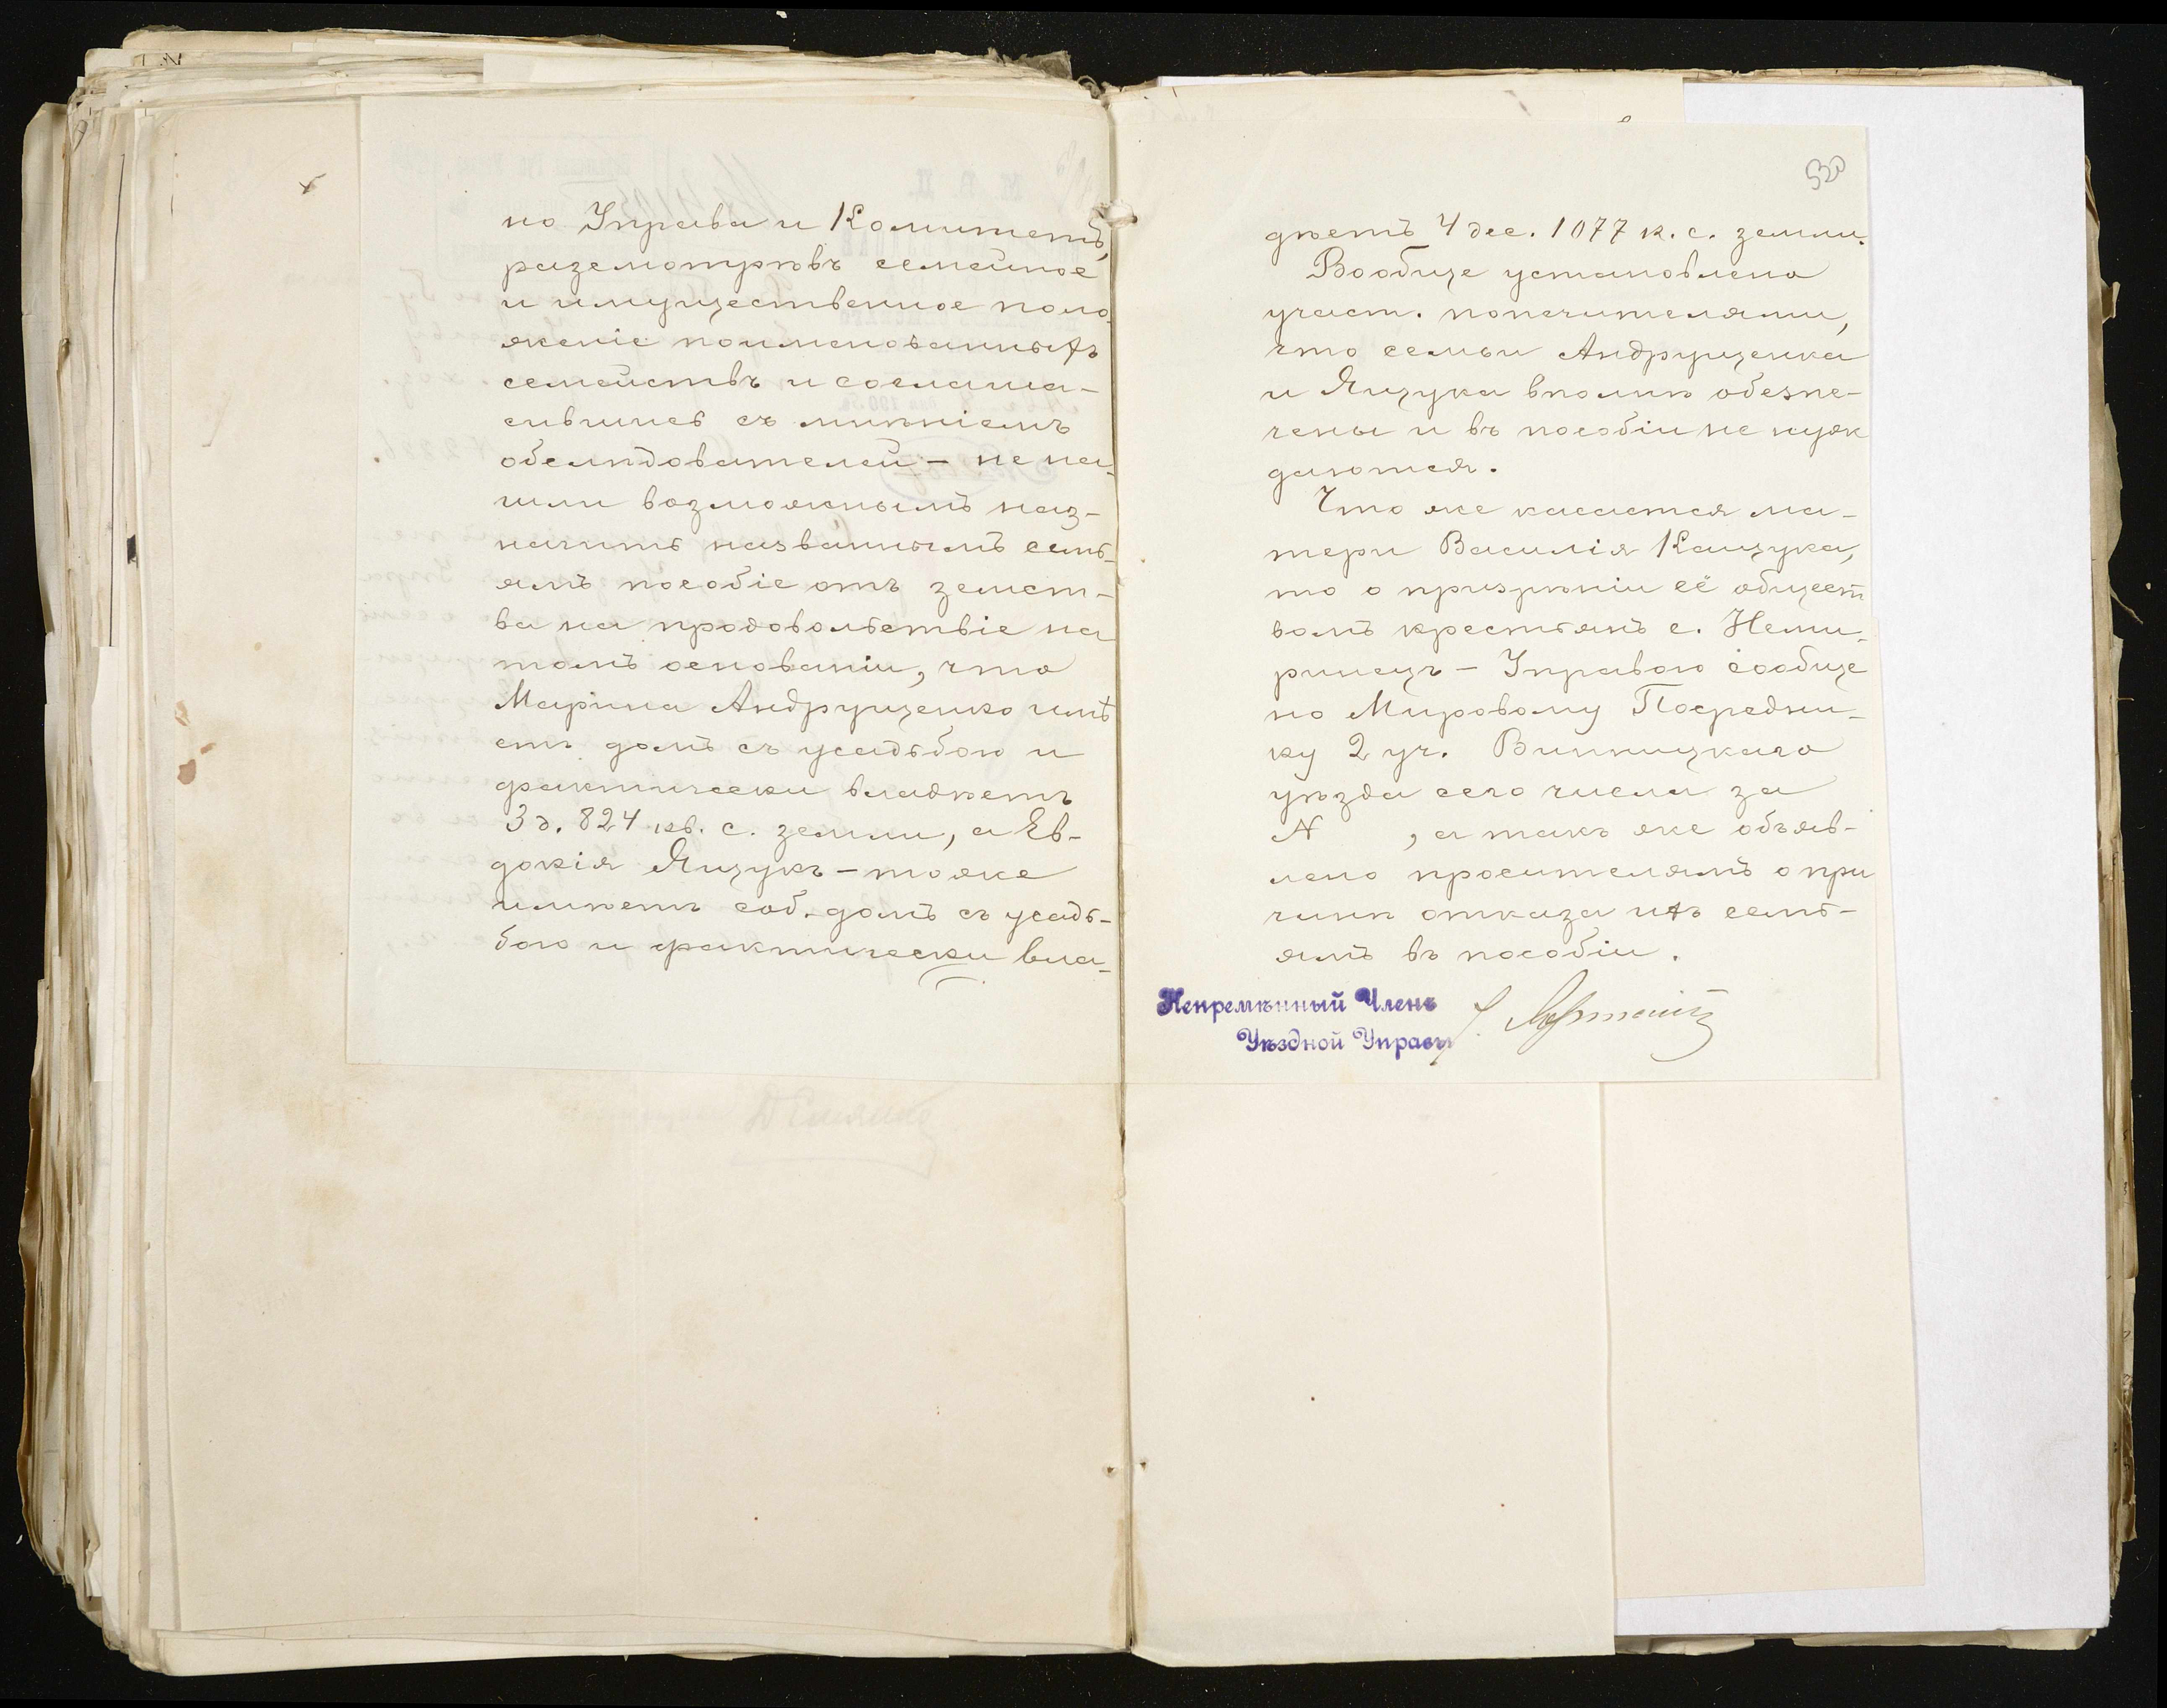 но Управа и Комитетъ,
разсмотрѣвъ семейное
и имущественное поло-
женіе поименованныхъ
семействъ и соглаша-
сившись съ мнѣніемъ
обслѣдователей – не на-
шли возможнымъ наз-
начить названнымъ семь-
ямъ пособіе отъ земст-
ва на продовольствіе на
томъ основаніи, что
Марина Андрущенко имѣ
етъ домъ съ усадьбою и
фактически владѣетъ
3 д. 824 кв. с. земли, а Ев-
докія Ящукъ – тоже
имѣетъ соб. домъ съ усадь-
бою и фактически вла-
530
дѣетъ 4 дес. 1077 к. с. земли.
Вообще установлено
участ. попечителями,
что семьи Андрущенка
и Ящука вполнѣ обезпе-
чены и въ пособіи не нуж
даются.
Что же касается ма-
тери Василія Кащука,
то о призрѣніи её общест
вомъ крестьянъ с. Неми-
ринецъ – Управою сообще
но Мировому Посредни-
ку 2 уч. Винницкаго
уѣзда сего числа за
N , а такъ же объяв-
лено просителямъ о при
чинѣ отказа ихъ семь-
ямъ въ пособіи.
Непремѣнный Членъ
Уѣздной Управы